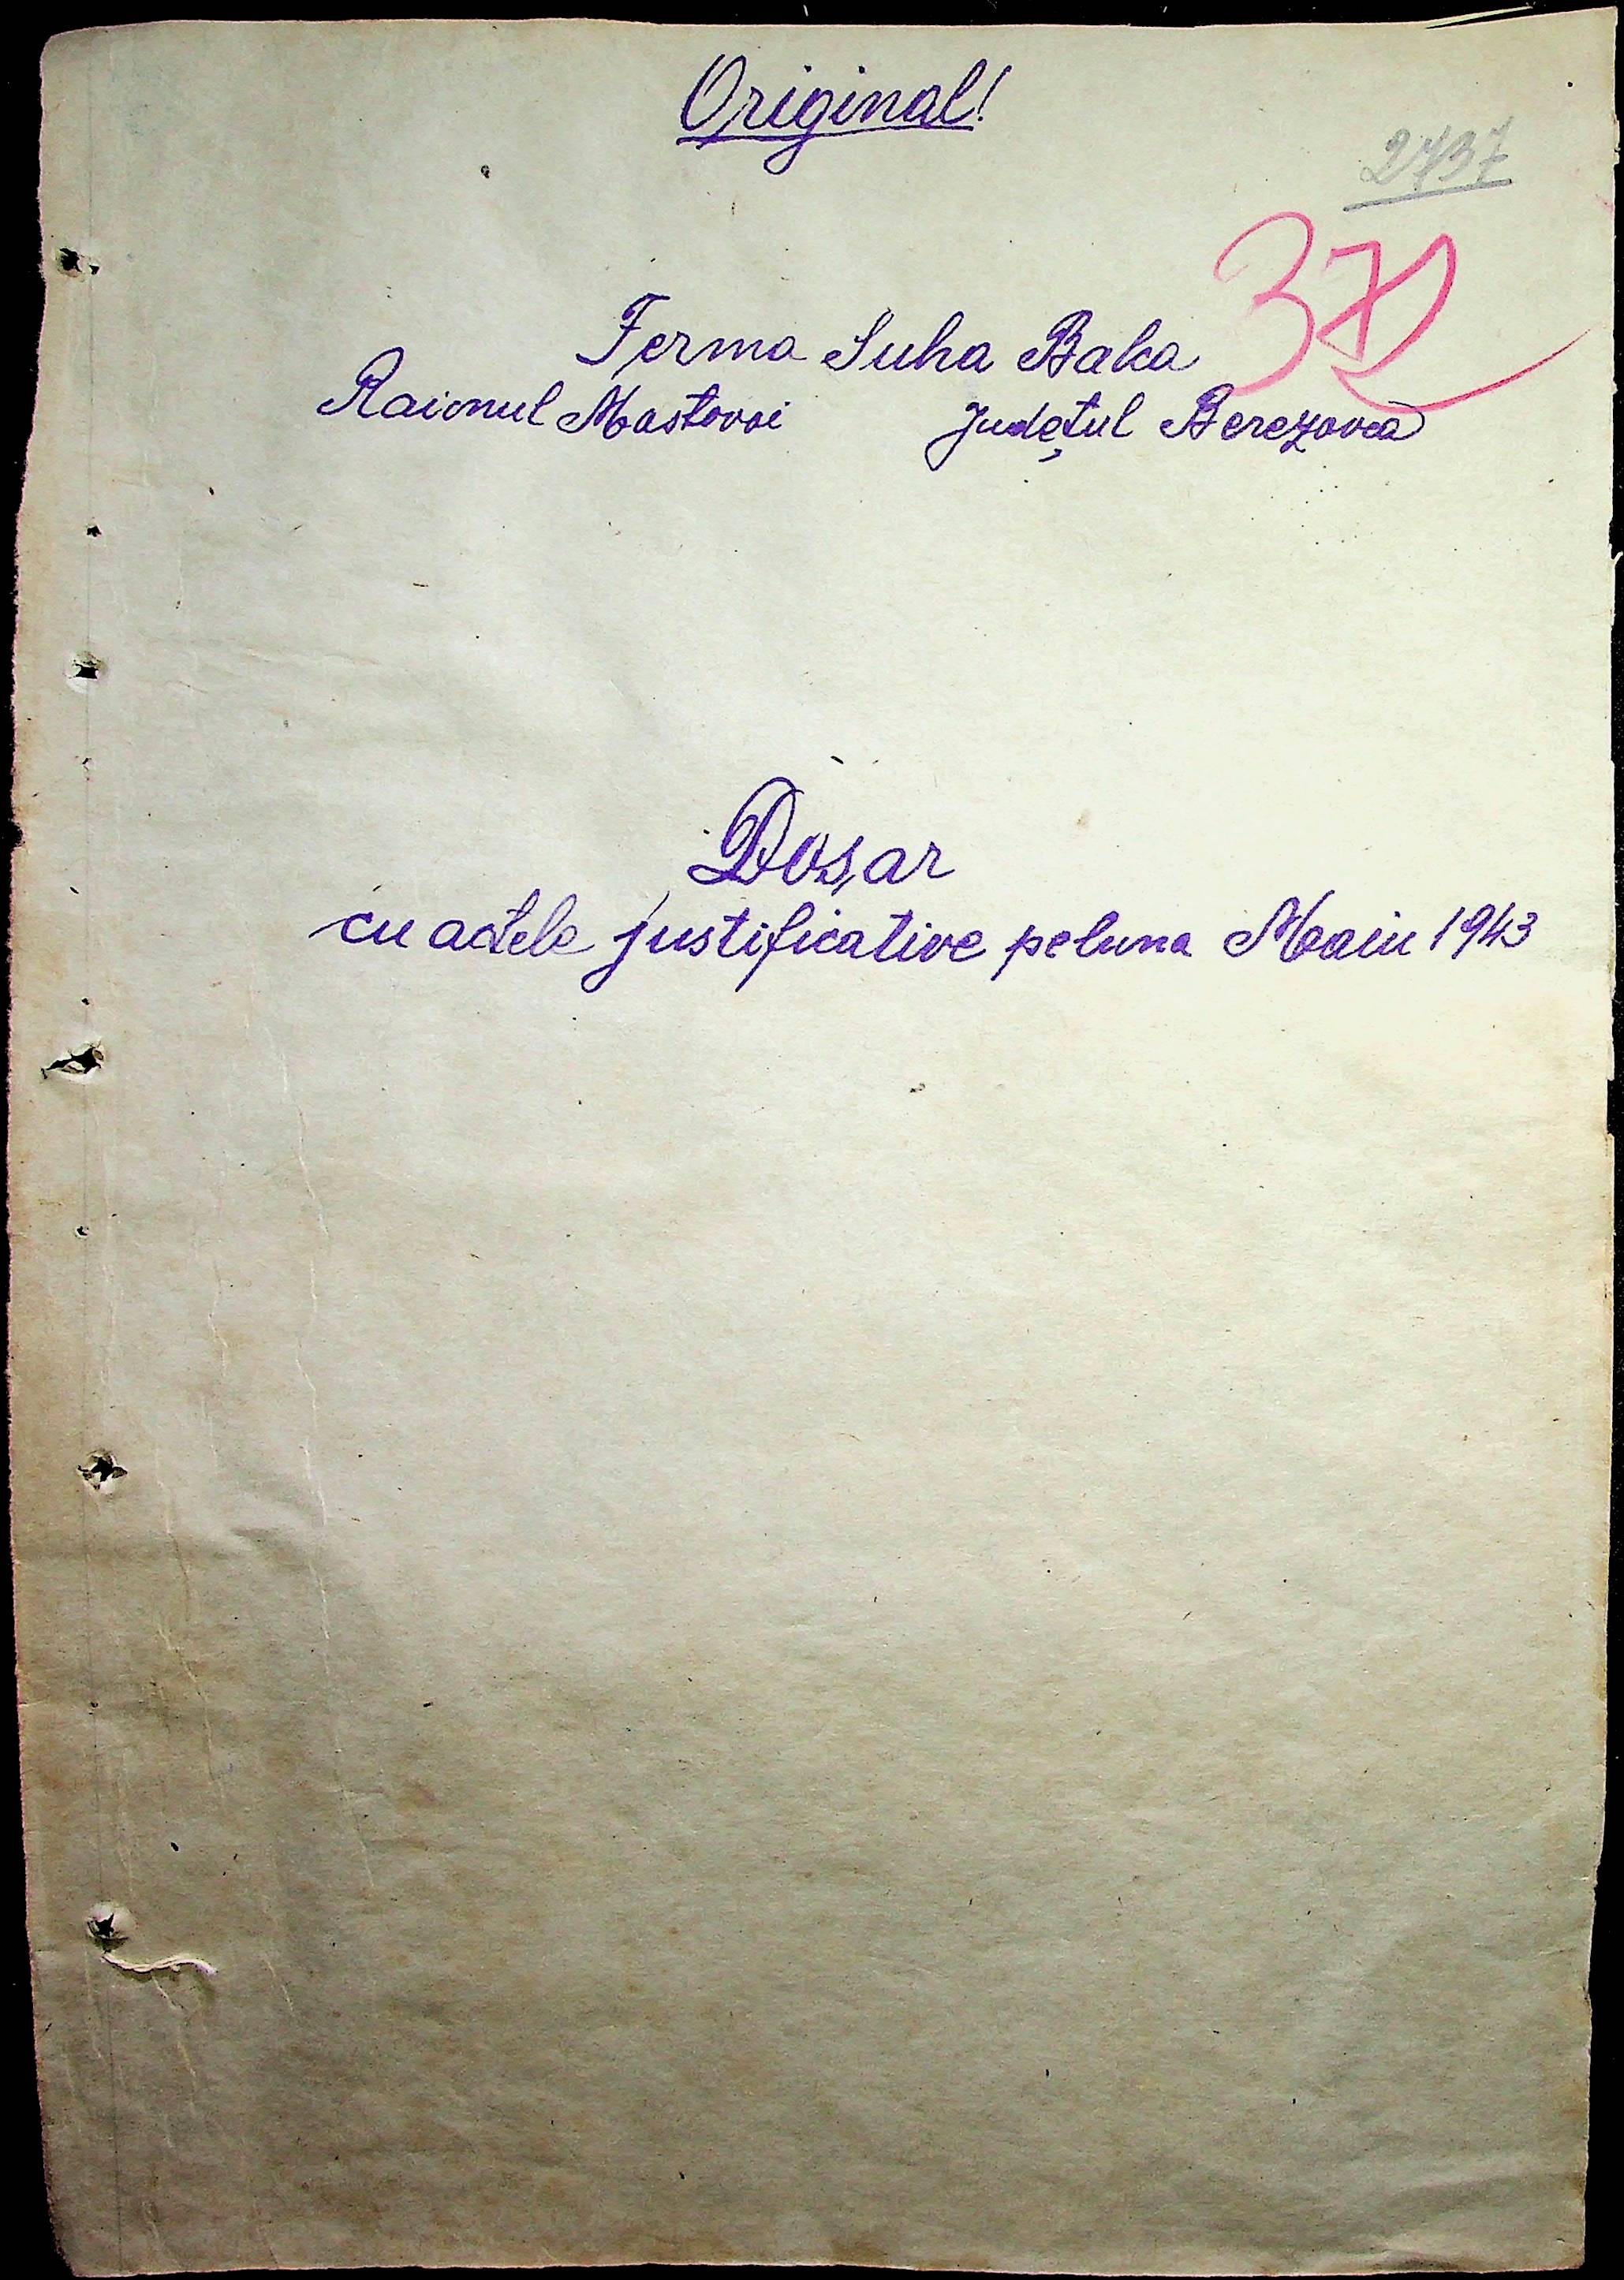 Original!
2737
372
Ferma Suha Balca
Raionul Mostovoi Județul Berezovca
Doșar
cu actele justificative pe luna Maiu 1943